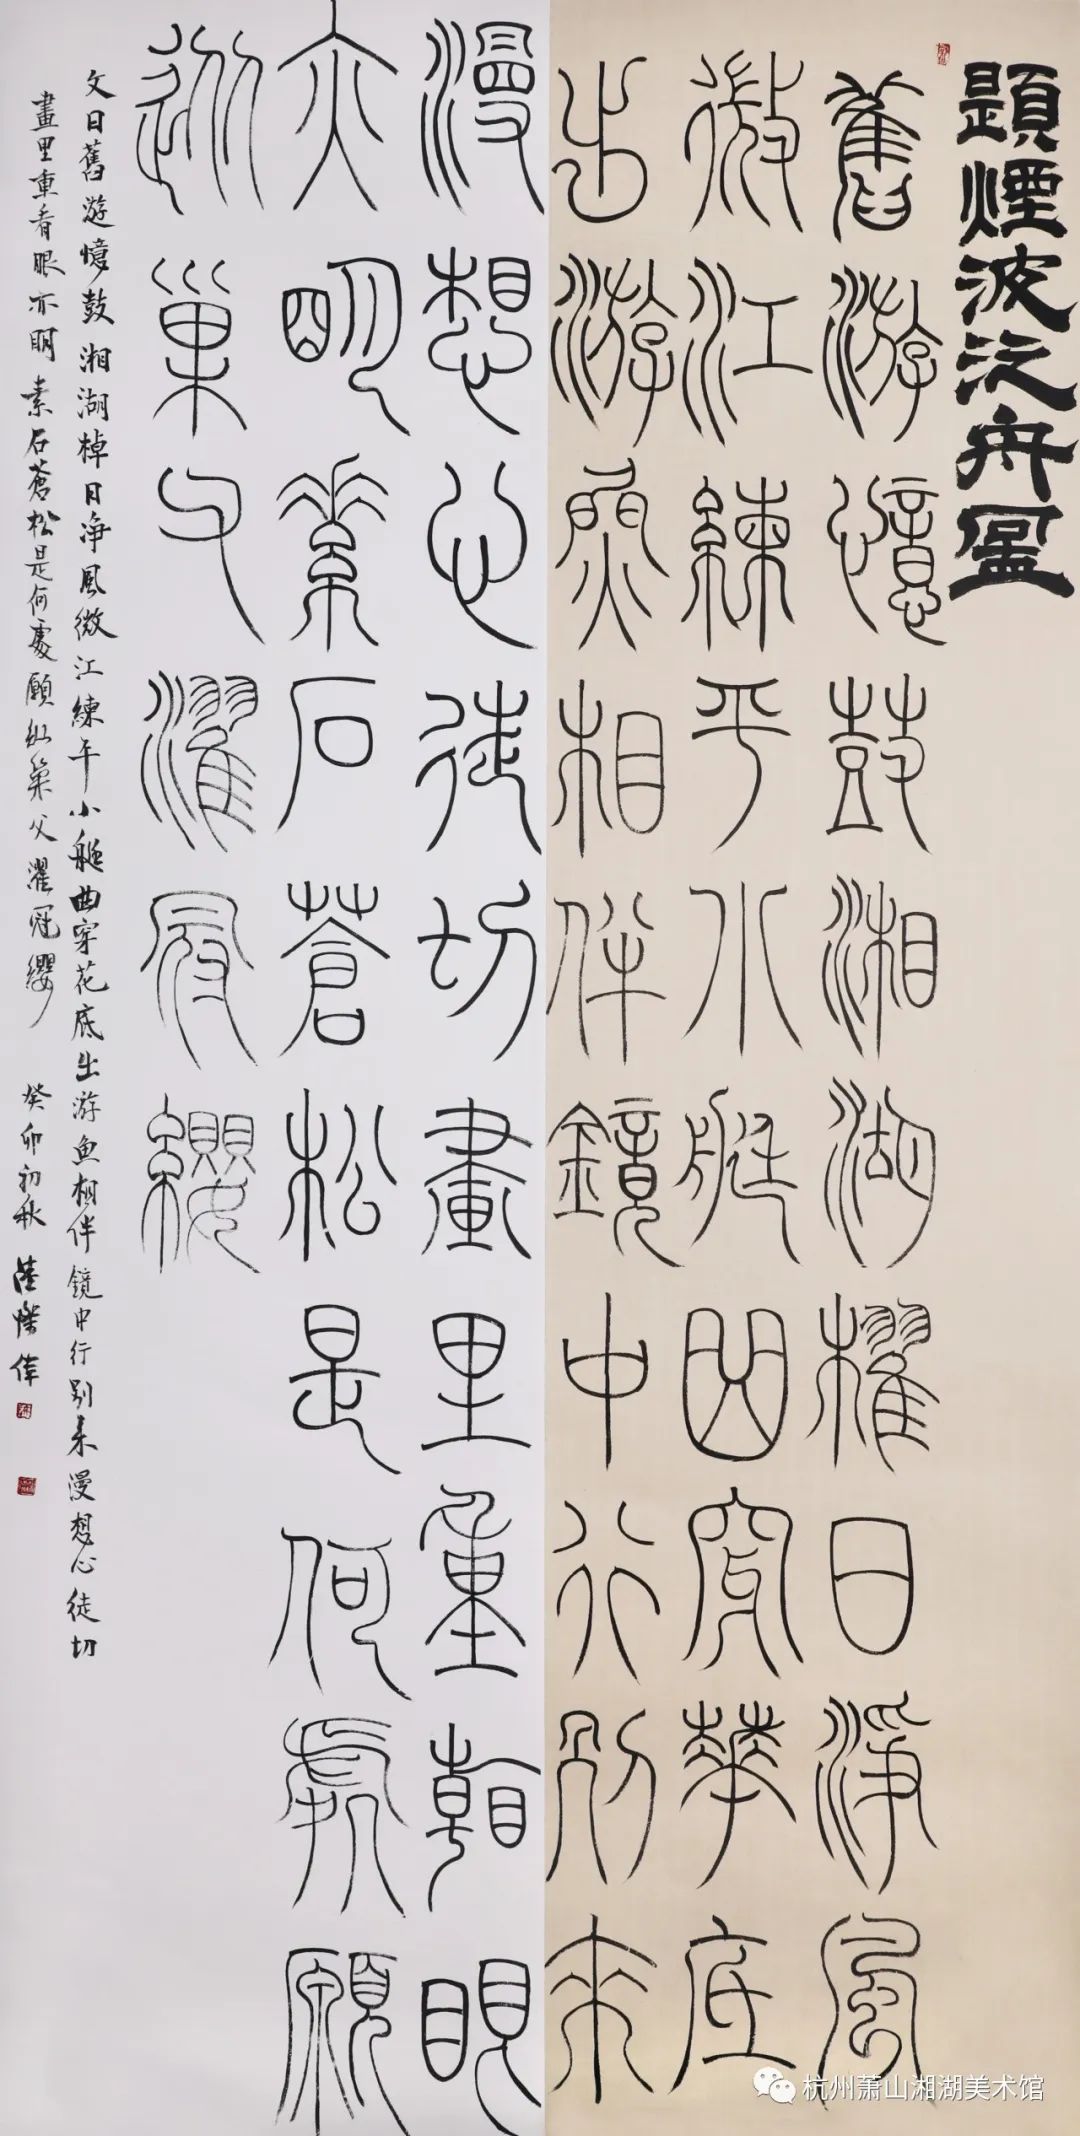 題煙波泛舟圖
舊游憶鼓湘湖櫂日淨風
微江練平小艇曲穿華底
出游魚相伴鏡中行別來
漫想心徒切畫里重看眼
亦明素石蒼松是何處願
從巢父濯冠纓
文曰舊遊憶鼓湘湖棹日淨風微江練平小艇曲穿花底出游鱼相伴鏡中行别来漫想心徒切
畫里重看眼亦明素石蒼松是何處願從巢父濯冠纓 癸卯初秋 陸
杭州萧山湘湖美术馆